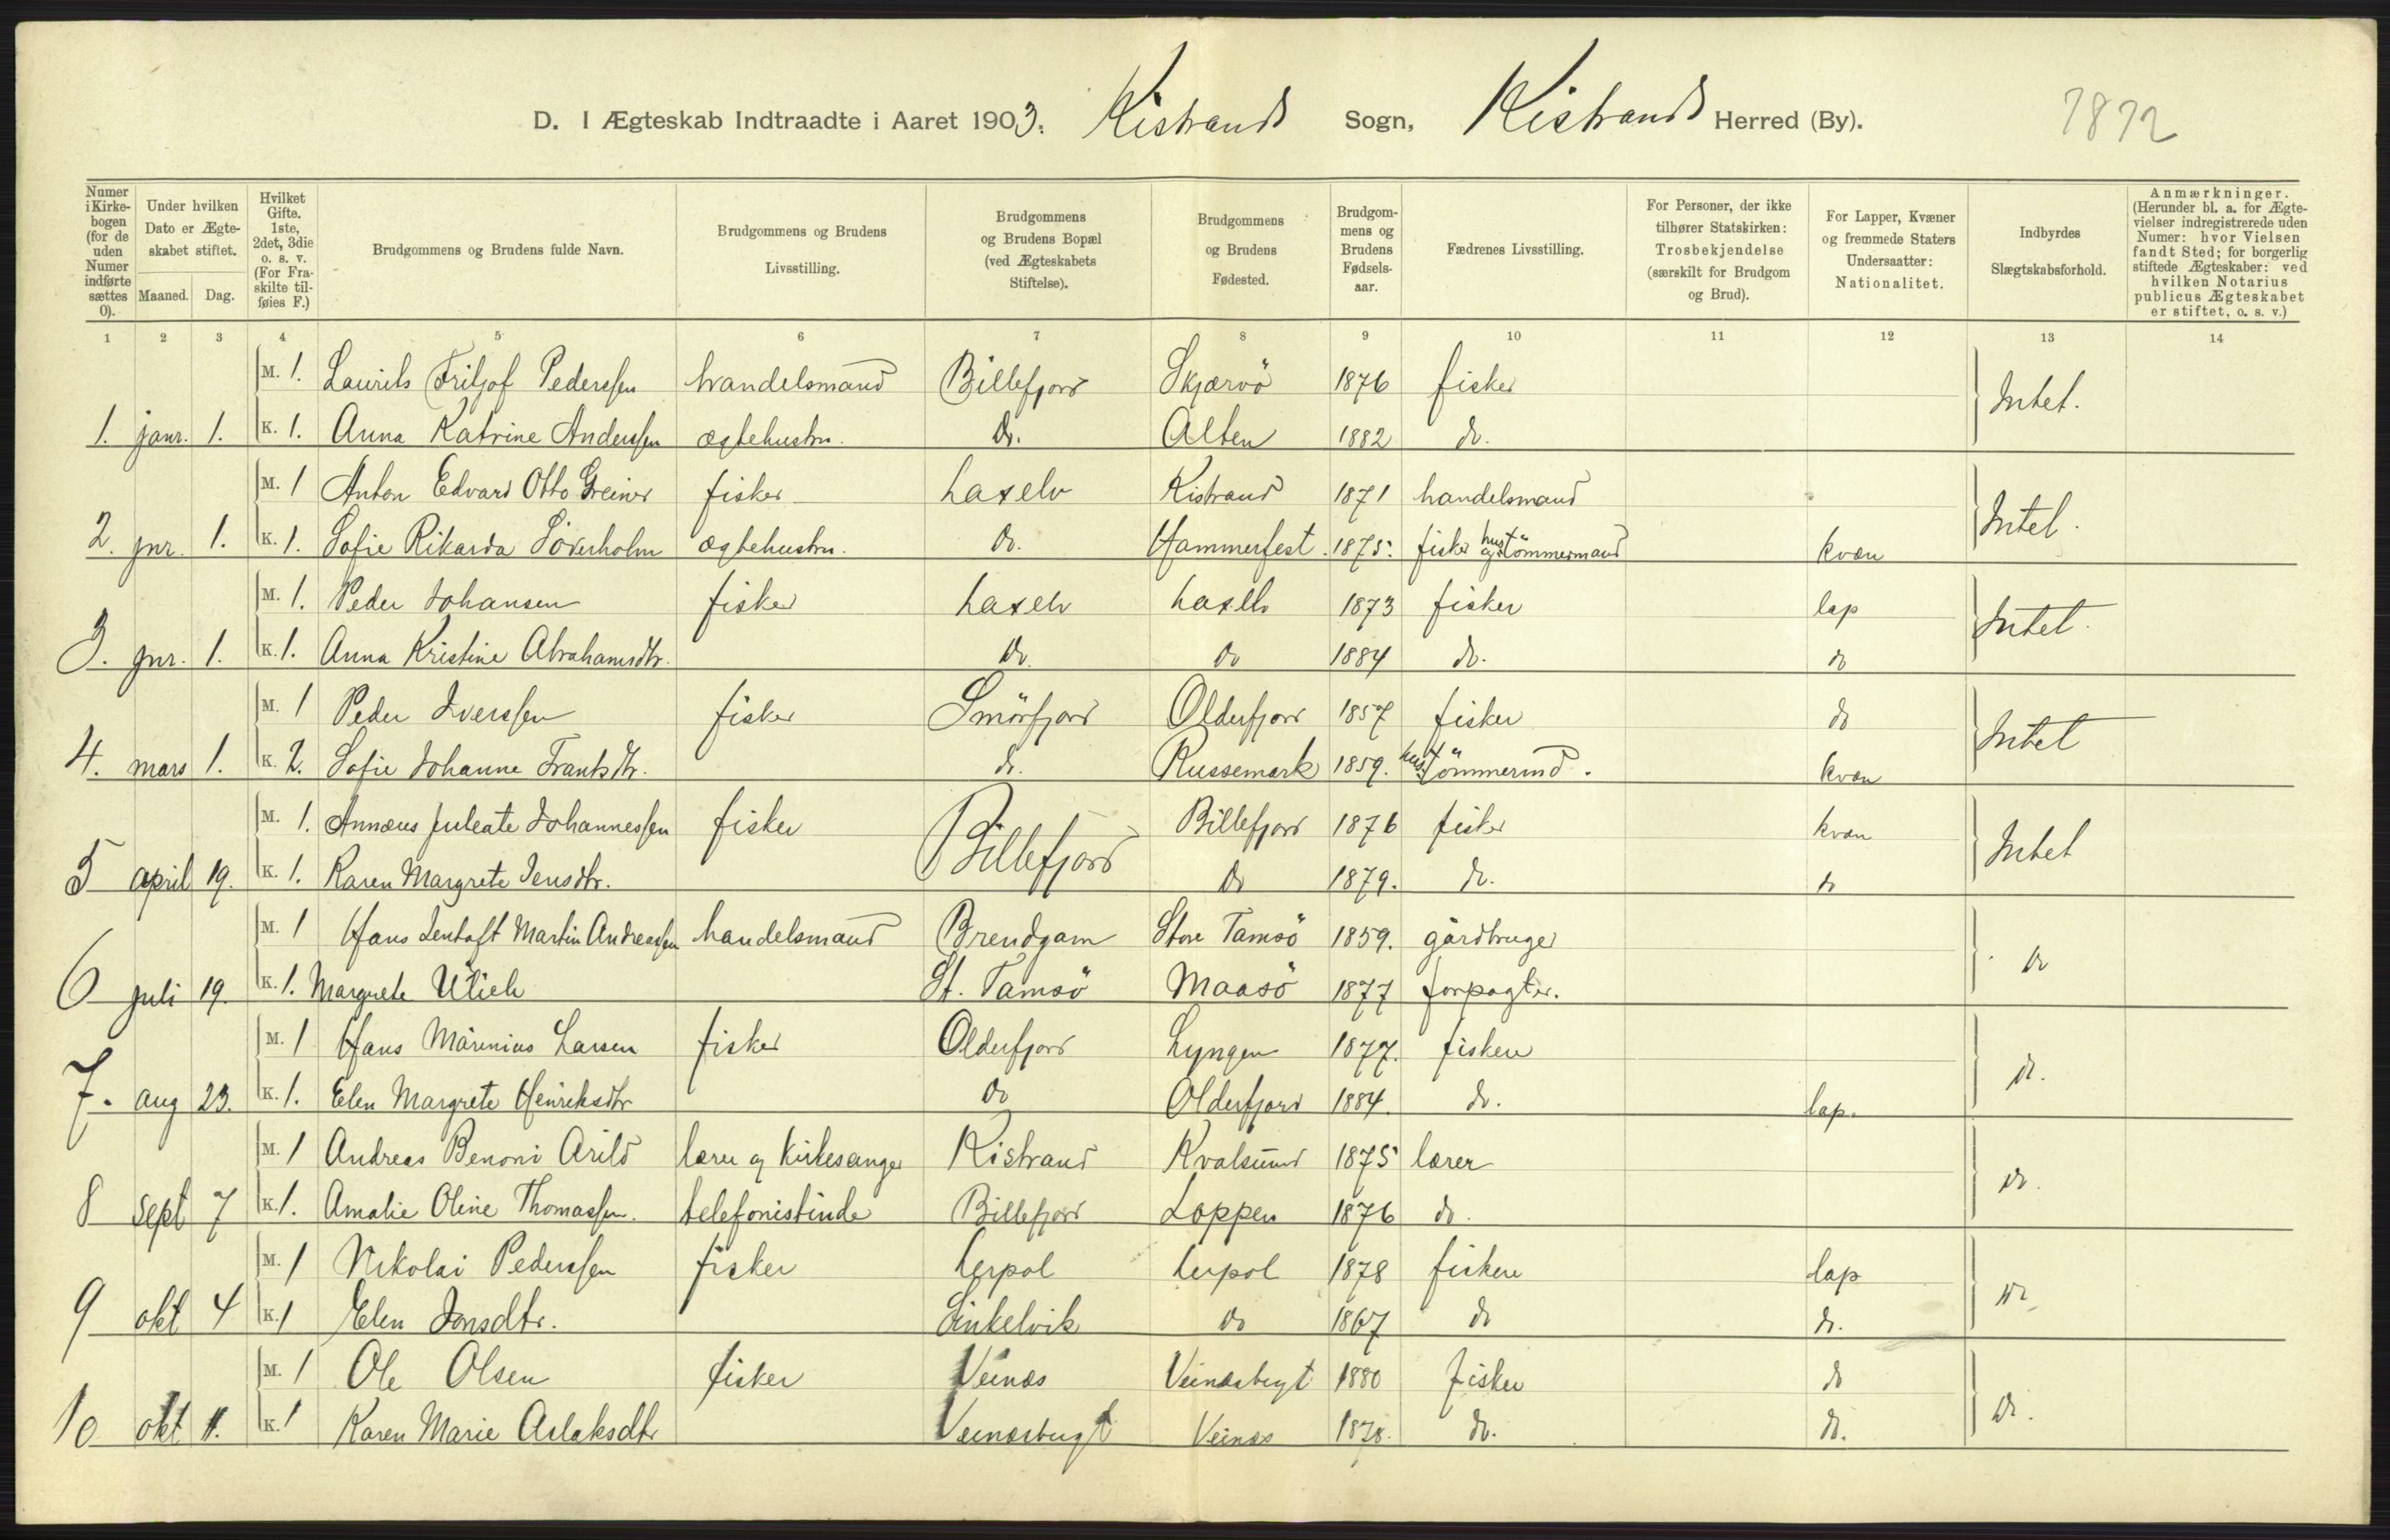 D. I Ægteskab Indtraadte i Aaret 1903. Kistrands Sogn, Kistrands Herred (By). 7872
Numer i Kirkebogen (for de uden Numer indførte sættes 0).
Under hvilken Dato er Ægteskabet stiftet. Maaned. Dag.
Hvilket Gifte. 1ste, 2det, 3die o. s. v. (For Fraskilte tilføies F.)
Brudgommens og Brudens fulde Navn.
Brudgommens og Brudens Livsstilling.
Brudgommens og Brudens Bopæl (ved Ægteskabets Stiftelse).
Brudgommens og Brudens Fødested.
Brudgommens og Brudens Fødselsaar.
Fædrenes Livsstilling.
For Personer, der ikke tilhører Statskirken: Trosbekjendelse (særskilt for Brudgom og Brud).
For Lapper, Kvæner og fremmede Staters Undersaatter: Nationalitet.
Indbyrdes Slægtskabsforhold.
Anmærkninger. (Herunder bl. a. for Ægtevielser indregistrerede uden Numer: hvor Vielsen fandt Sted; for borgerlig stiftede Ægteskaber: ved hvilken Notarius publicus Ægteskabet er stiftet, o. s. v.)
1 2 3 4 5 6 7 8 9 10 11 12 13 14
M. 1. Laurits Fritjof Pederssen handelsmand Billefjord Skjærvö 1876 fisker Intet.
1. janr. 1. K. 1. Anna Katrine Anderssen ægtehustru. do. Alten 1882 do.
M. 1 Anton Edvard Otto Greiner fisker Laxelv Kistrand 1871 handelsmand Intet.
2. jnr. 1. K. 1. Sofie Rikarda Söderholm ægtehustru. do. Hammerfest. 1875. fisker og hustömmermand kvæn
M. 1. Peder Johansen fisker Laxelv Laxelv 1873 fisker lap Intet.
3. jnr. 1. K. 1. Anna Kristine Abrahamsdtr. do. do 1884 do. do
M. 1 Peder Iverssen fisker Smörfjord Olderfjord 1857 fisker do Intet
4. mars 1. K. 2. Sofie Johanne Frantsdtr. do. Russemark 1859. hustömmermd. kvæn
M. 1. Annæus Juleate Johannessen fisker Billefjord Billefjord 1876 fisker kvæn Intet
5 april 19. K. 1. Karen Margrete Jensdtr. do 1879. do. do
M. 1 Hans Jentoft Martin Andreassen handelsmand Brendgam Store Tamsö 1859. gårdbruger do
6 juli 19. K. 1. Margrete Ulich St. Tamsö Maasö 1877 forpagter.
M. 1 Hans Mårinius Larsen fisker Olderfjord Lyngen 1877. fiskere do.
7. aug 23. K. 1. Elen Margrete Henriksdtr do Olderfjord 1884. do. lap.
M. 1 Andreas Benoni Arild lærer og kirkesanger Kistrand Kvalsund 1875 lærer do.
8 sept 7 K. 1. Amalie Oline Thomassen. telefonistinde Billefjord Loppen 1876 do.
M. 1 Nikolai Pederssen fisker Lerpol Lerpol 1878 fiskere lap do
9 okt 4 K. 1 Elen Jonsdtr. Sinkelvik do 1867 do do.
M. 1 Ole Olsen fisker Veinæs Veinæsbugt 1880 fisker do do.
10 okt 11. K. 1 Karen Marie Aslaksdtr Veinæsbugt Veinæs 1878. do. do.